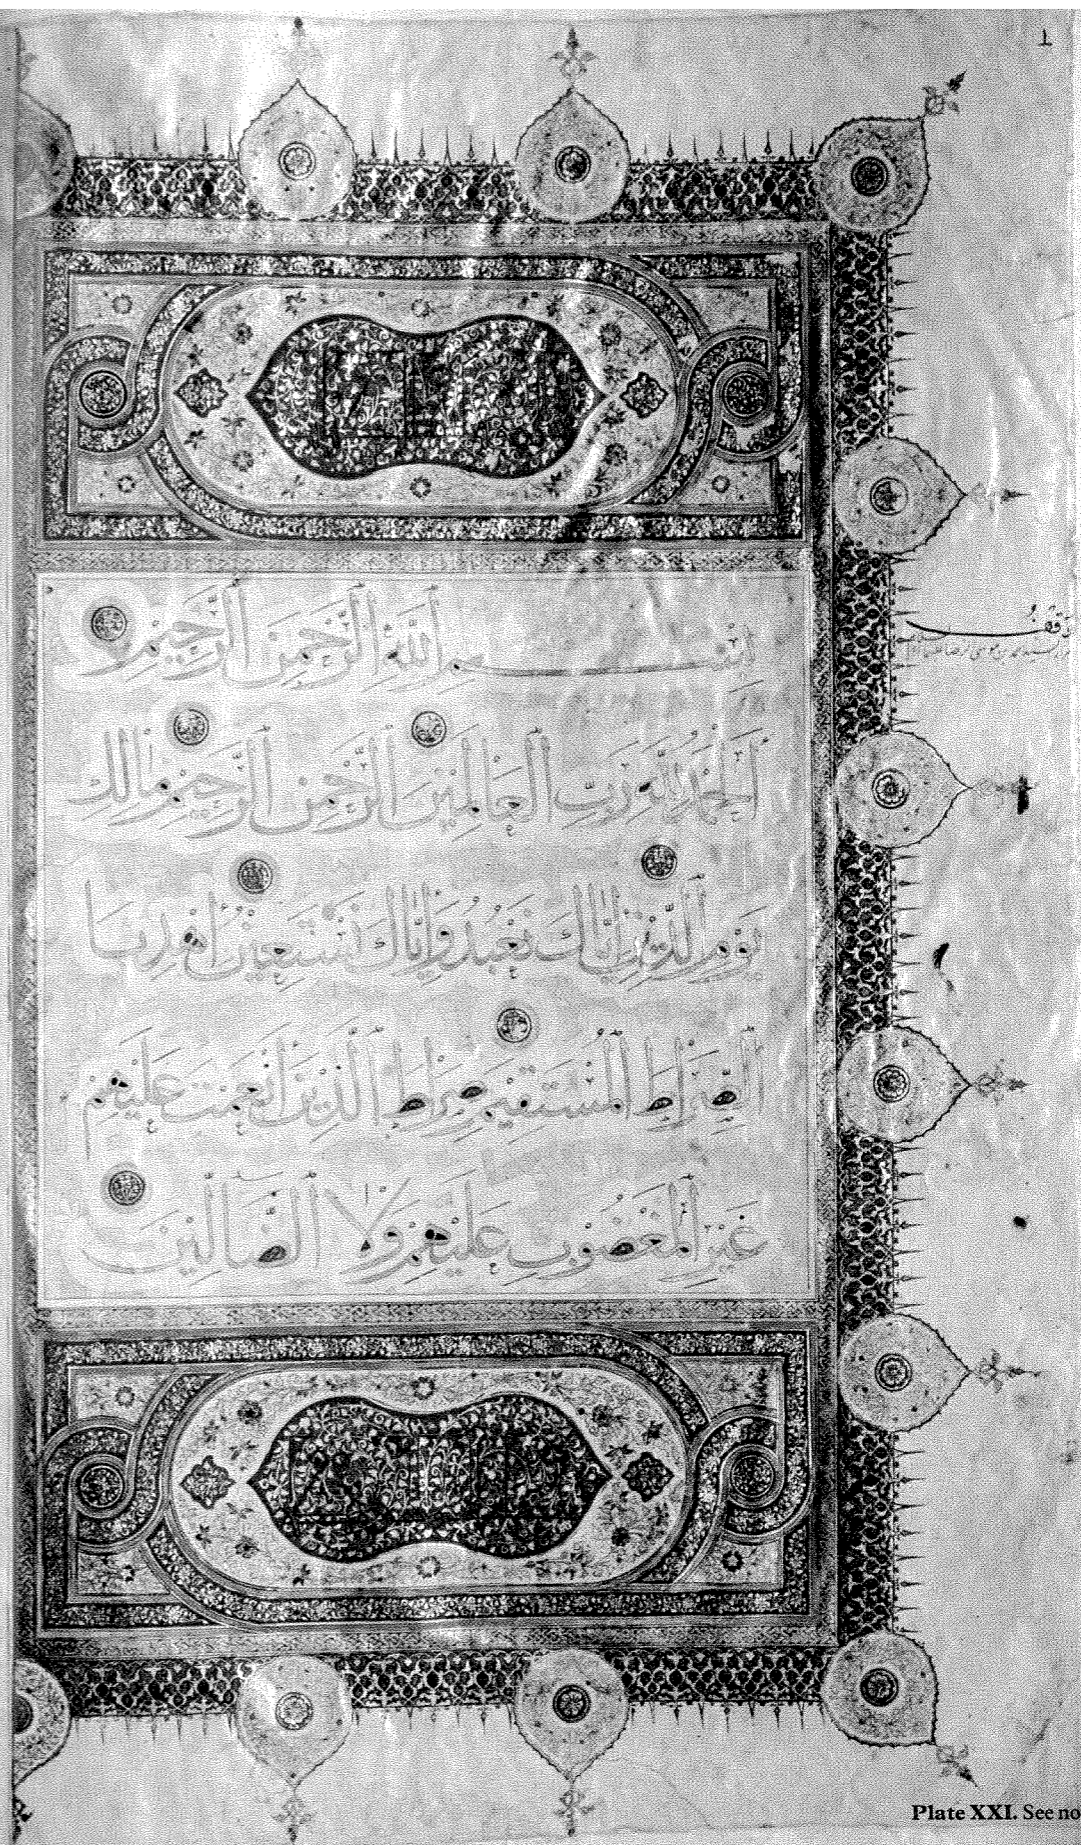 بسم الله الرحمن الرحيم
الحمد لله رب العالمين الرحمن الرحيم مالك
يوم الدين إياك نعبد وإياك نستعين اهدنا
الصراط المستقيم صراط الذين أنعمت عليهم
غير المغضوب عليهم ولا الضالين
Plate XXI. See no